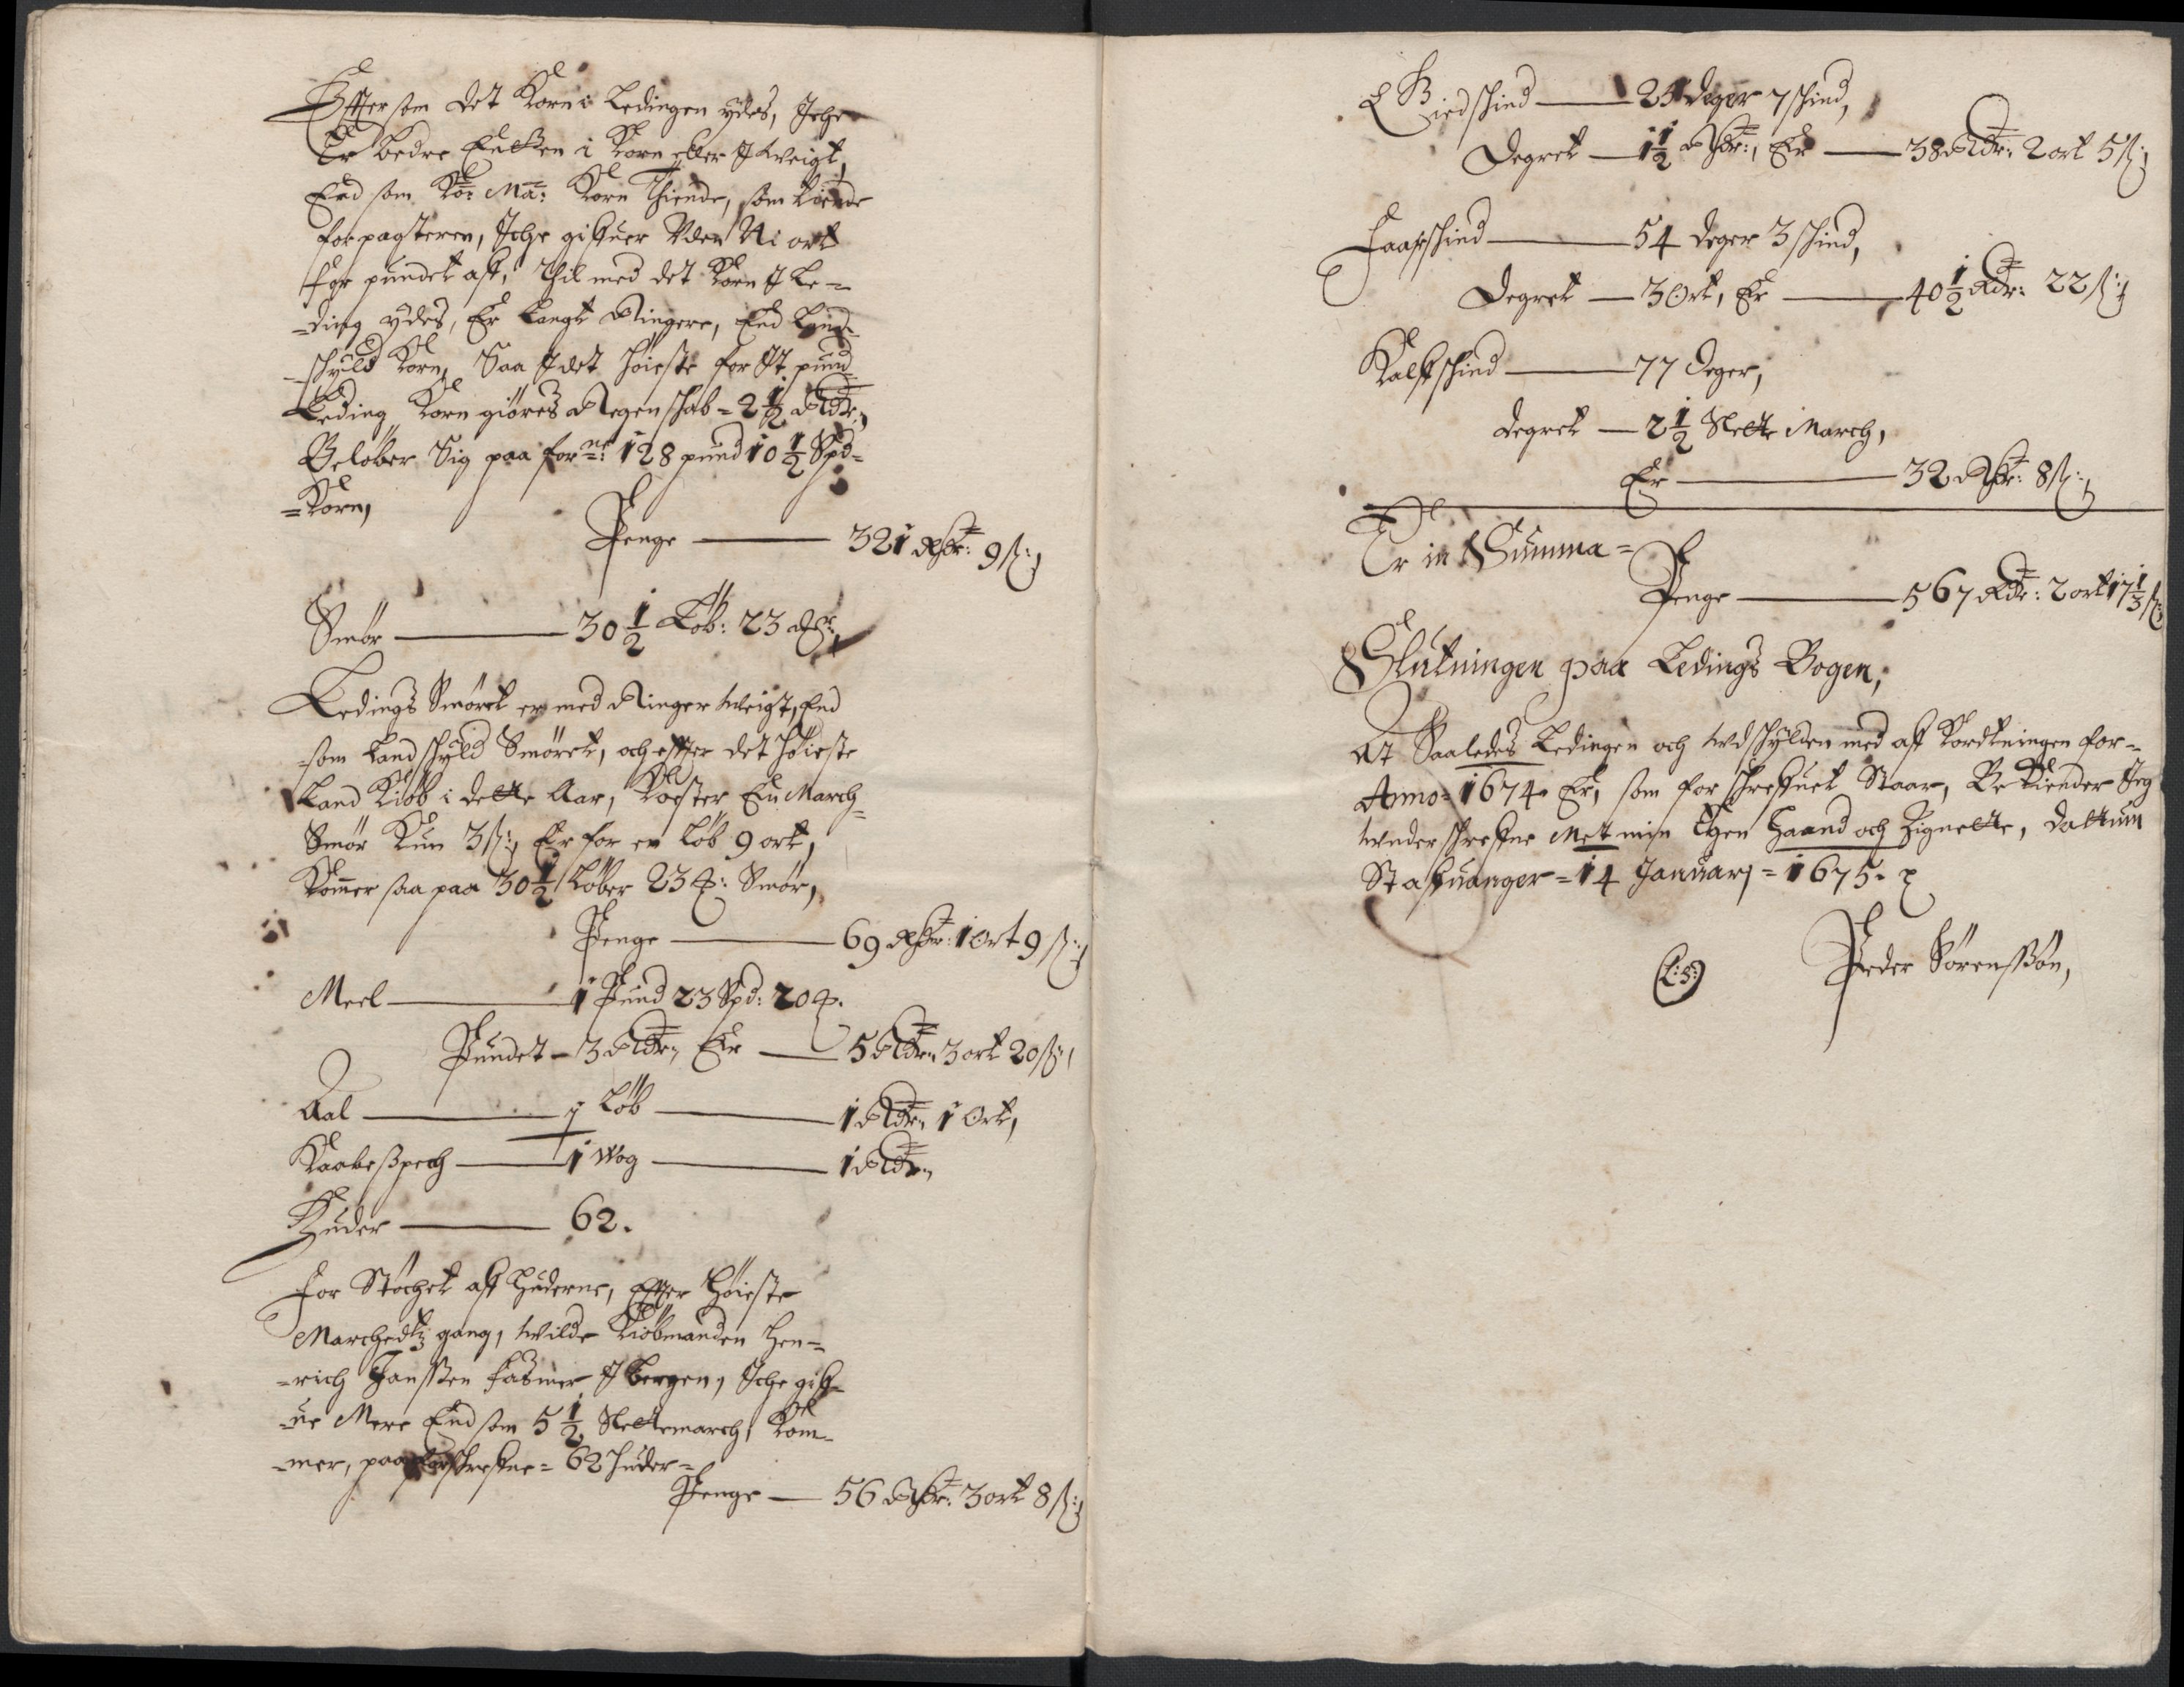 Effter som det Korn i Ledingen ydes, Iche
Er bedre Enten i Korn eller I weigt,
End som Ko: Ma: Korn Thiende, som Tiende
forpagteren, Iche gifuer Uden Ni ort
for pundet aff, Thil med det Korn I Le-
-ding ydes, Er langt Ringere, End Land-
-schyld Korn, Saa I det höieste for It pund
Leding Korn giöres Regenschab = 2½ Rdr:
Belöber Sig paa forne: 128 pund 10½ Spd=
=Korn,
Penge — 321 Rdr: 9 ß:
Smör — 30½ Löb: 23 mr:
Ledings Smöret er med Ringer weigt, End
som Landschyld Smöret, och effter det Höieste
Land Kiöb i dette Aar, Koster En March-
Smör Kun 3 ß:, Er for en Löb 9 ort,
Kommer saa paa 30½ Löber 23 ℔: Smör,
Penge — 69 Rdr: 1 Ort 9 ß:
Meel — 1 Pund 23 Spd: 20 ℔.
Pundet – 3 Rdr, Er — 5 Rdr: 3 ort 20 ß:
Aal — 1 Löb — 1 Rdr 1 Ort,
Kaabeßpech — 1 Wog — 1 Rdr,
Huder — 62.
for Stöchet aff Huderne, Effter Höieste
Marchedtz gang, wilde Kiöbmanden Hen-
-rich Janssen Fasmer I Bergen, Iche gif-
-ue Mere End som 5½ Slettemarch, Kom-
-mer, paa forschrefne = 62 Huder =
Penge — 56 Rdr: 3 ort 8 ß:
Giedschind — 25 Deger 7 schind,
Degret — 1½ Rdr:, Er — 38 Rdr: 2 ort 5 ß:
Faareschind — 54 Deger 3 schind,
Degret — 3 Ort, Er — 40½ Rdr: 22 ß:
Kalfschind — 77 Deger,
degret — 2½ Slette March,
Er — 32 Rdr: 8 ß:
Er in Summa =
Penge — 567 Rdr: 2 ort 17⅓ ß:
Slutningen paa Ledings Bogen,
At Saaledes Ledingen och Wdschylden med aff Kordtningen for-
Anno = 1674. Er, som forschrefuet Staar, Bekiender Jeg
Wnderschrefne Met min Egen Haand och Zignette, Dattum
Stafuanger = 14 Januarj = 1675.
(L:S:) Peder Sörenssön,